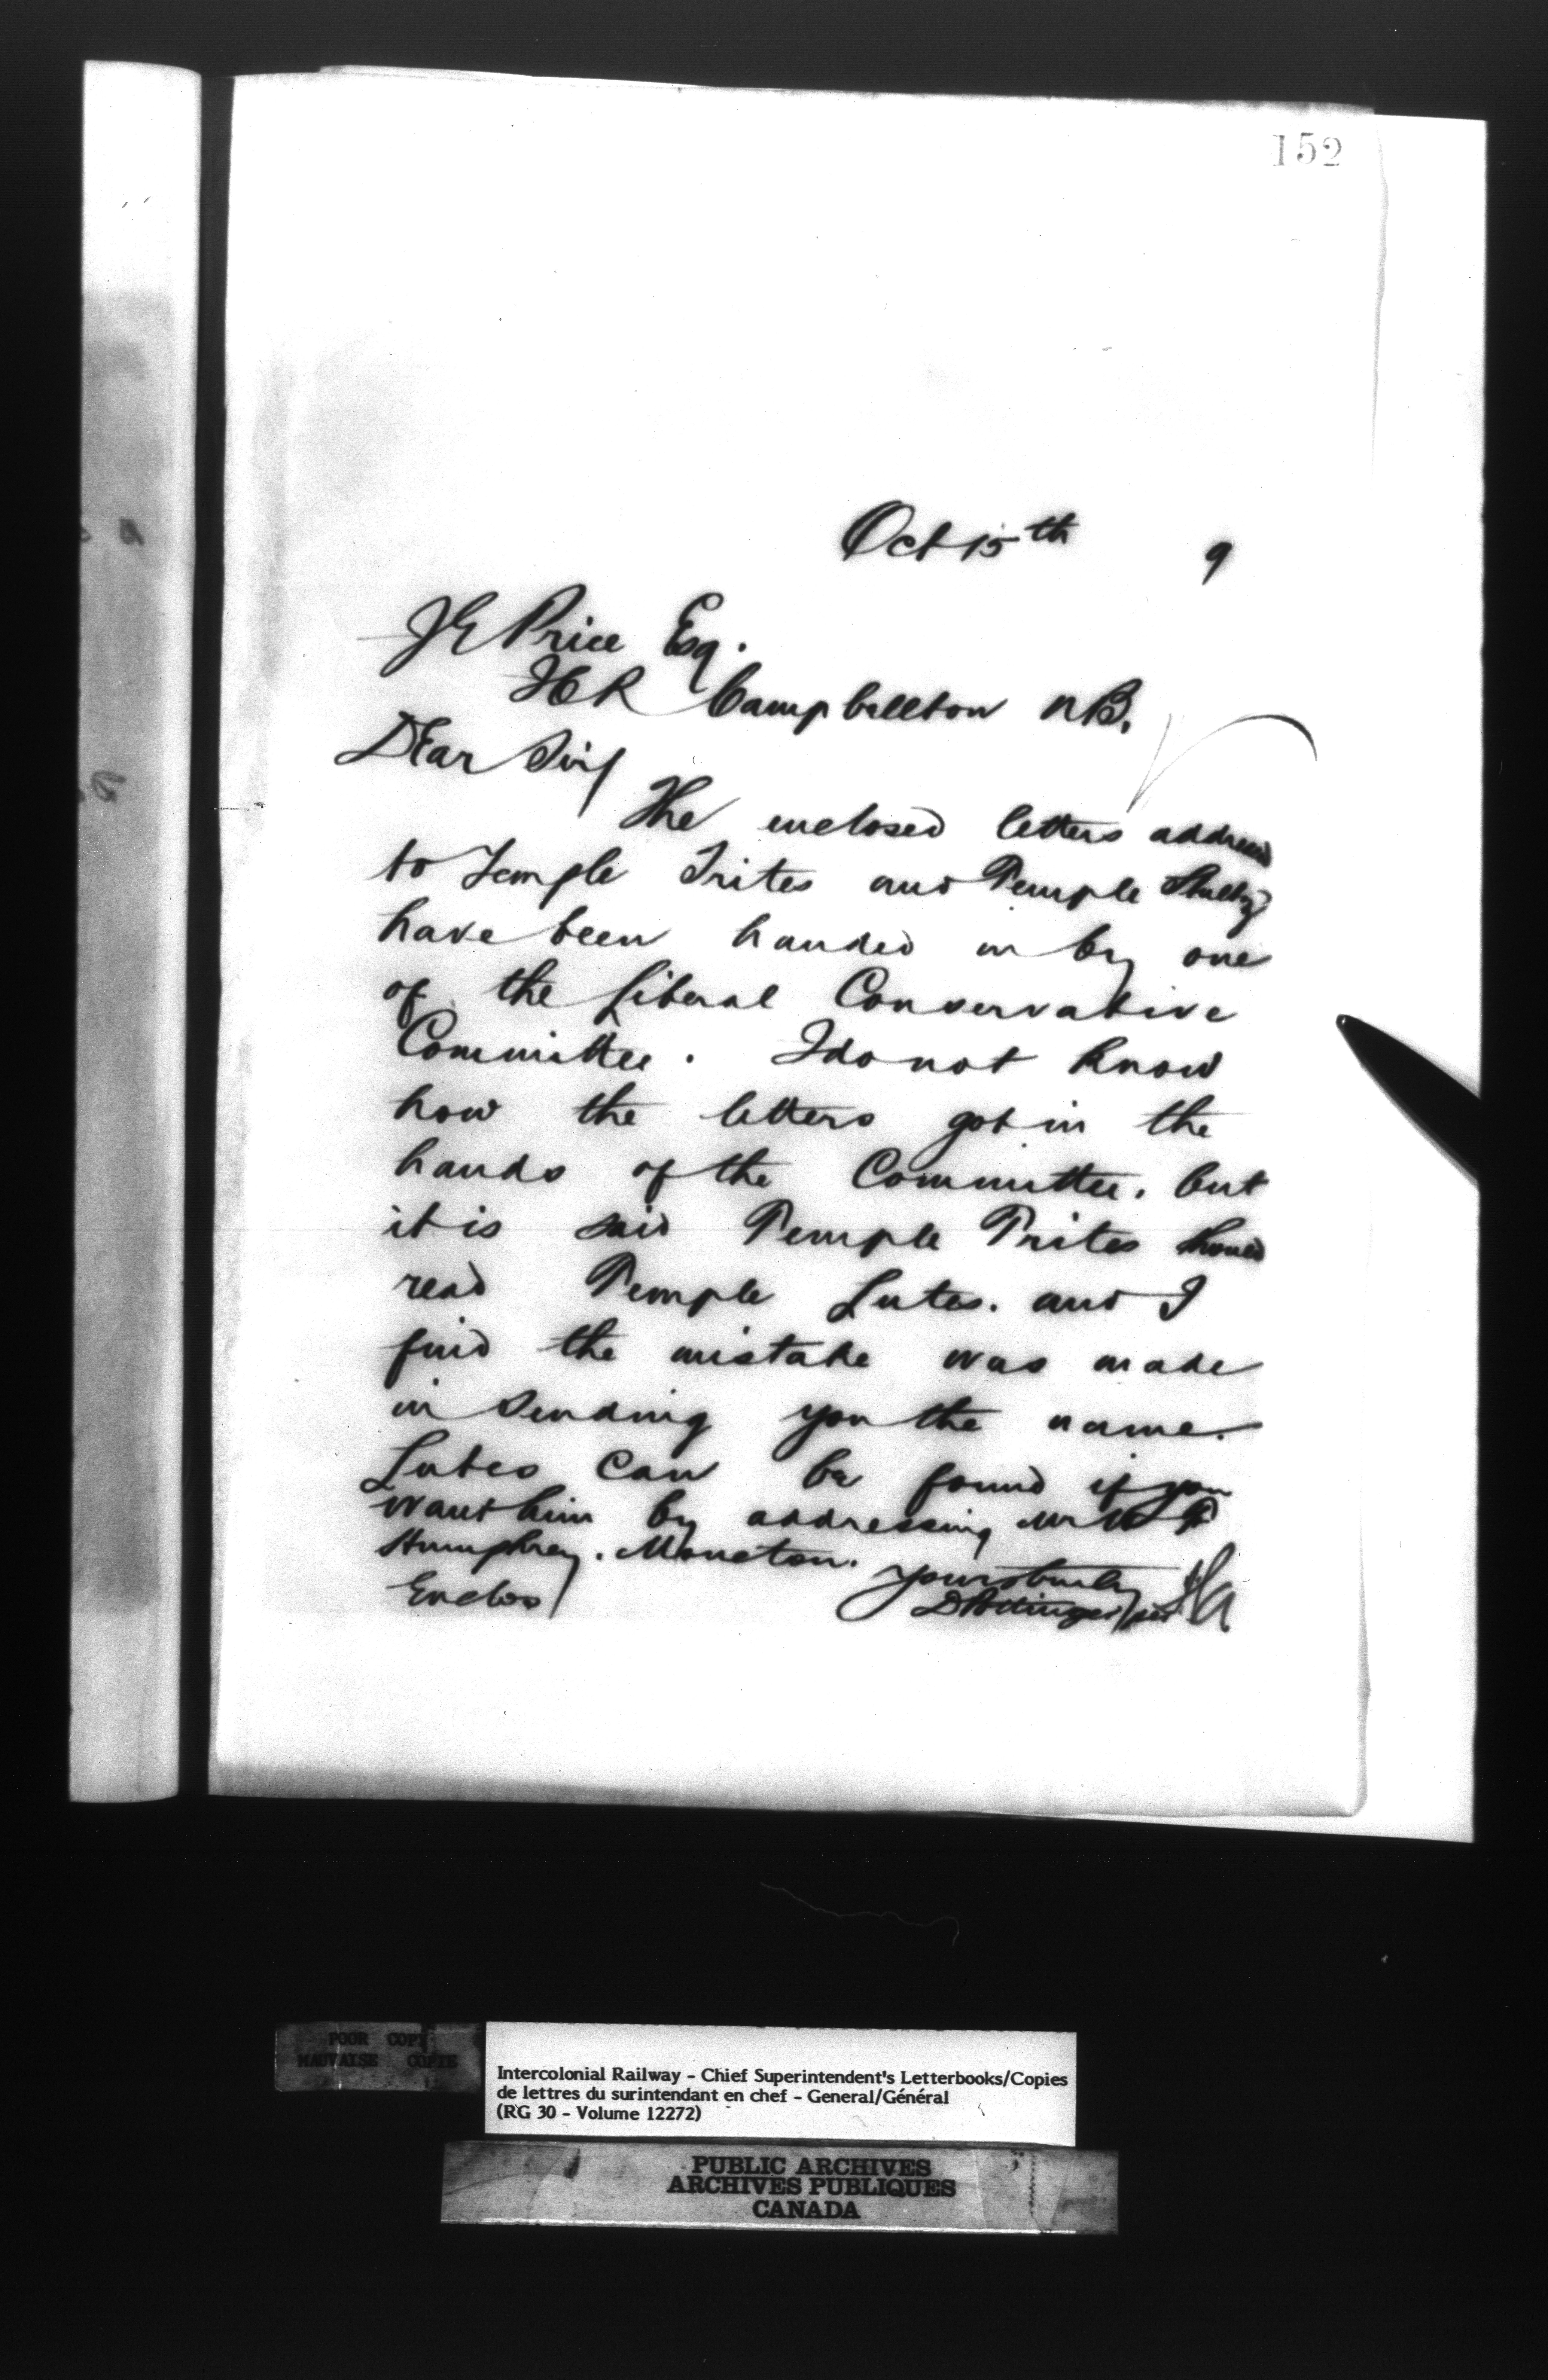 152
Oct 15th 9
J E Price Esq.
ICR Campbellton NB.
Dear Sir/
The enclosed letters addressed
to Temple Trites and Temple
have been handed in by one
of the Liberal Conservative
Committee. I do not know
how the letters got in the
hands of the Committee. but
it is said Temple Trites should
read Temple Lutes. and I
find the mistake was made
in sending you the name.
Lutes can be found if you
want him by addressing Mr W
Humphrey. Moncton.
Yours truly
Enclos/
D Pottinger/per
POOR COPY
MAUVAISE COPIE
Intercolonial Railway - Chief Superintendent's Letterbooks/Copies
de lettres du surintendant en chef - General/Général
(RG 30 - Volume 12272)
PUBLIC ARCHIVES
ARCHIVES PUBLIQUES
CANADA